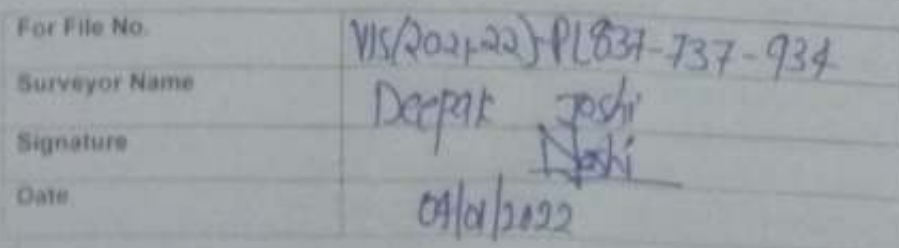 For File No. VIS(2021-22)-PL837-737-934
Surveyor Name Deepak Joshi
Signature DJoshi
Date 04/01/2022